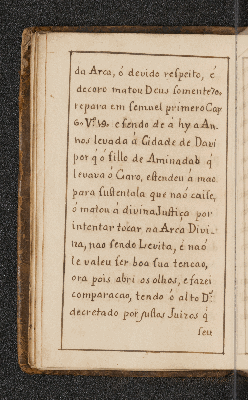 da Arca, ó devido respeito, é
decoro matou Deus somente 70.
repara em Semuel primero Cap
6. Vº. 19. e sendo de á hy a An-
nos levada á Cidade de Davi
por q́ ó fillo de Aminadab q́
levava ó Caro, estendeu á mao
para sustentala que naó caise,
ó matou á divina Justiça por
intentar tocar na Arca Divi-
na, nao sendo Levita, é naó
le valeu ser boa sua tencao,
ora pois abri os olhos, e fazei
comparacao, tendo ó alto D.ˢ
decretado por justos Juizos q́
seu